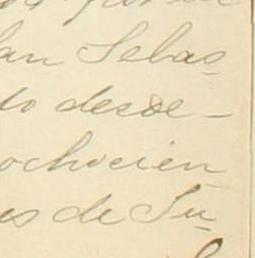 an Sebas-
to desde-
ochocien
es de Ju-